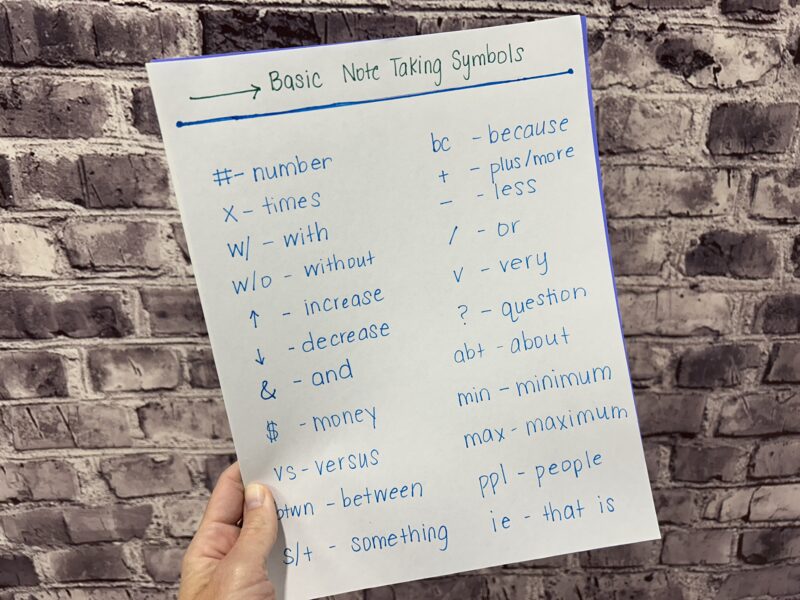 → Basic Note Taking Symbols
#- number
x - times
w/ - with
w/o - without
↑ - increase
↓ - decrease
& - and
$ - money
vs - versus
btwn - between
s/t - something
bc - because
+ - plus/more
− - less
/ - or
v - very
? - question
abt - about
min - minimum
max - maximum
ppl - people
ie - that is